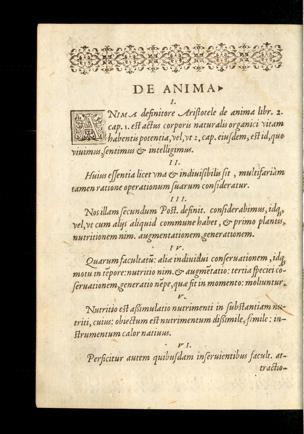 DE ANIMA
I.
ANIMA definitore Aristotele de anima libr. 2.
cap. 1. est actus corporis naturalis organici vitam
habentis potentia, vel, vt 2, cap. eiusdem, est id, quo
viuimus, sentimus & intelligimus.
II.
Huius essentia licet vna & indiuisibilis sit, multifariàm
tamen ratione operationum suarum consideratur.
III.
Nos illam secundum Post. definit. considerabimus, idq,
vel, vt cum alijs aliquid commune habet, & primo plantis,
nutritionem nim. augmentationem, generationem.
IV.
Quarum facultatū: alia indiuidui conseruationem, idq
motu in tēpore: nutritio nim. & augmētatio: tertia speciei co̅-
seruationem, generatio nēpe, quæ fit in momento: moliuntur.
V.
Nutritio est assimulatio nutrimenti in substantiam nu-
triti, cuius: obiectum est nutrimentum dissimile, simile: in-
strumentum calor natiuus.
VI.
Perficitur autem quibusdam inseruientibus facult. at-
tractio-